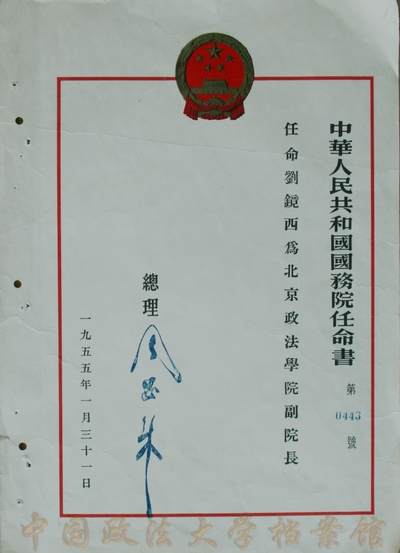 中華人民共和國國務院任命書
第 0443 號
任命劉鏡西爲北京政法學院副院長
總理 周恩来
一九五五年一月三十一日
中国政法大学档案馆